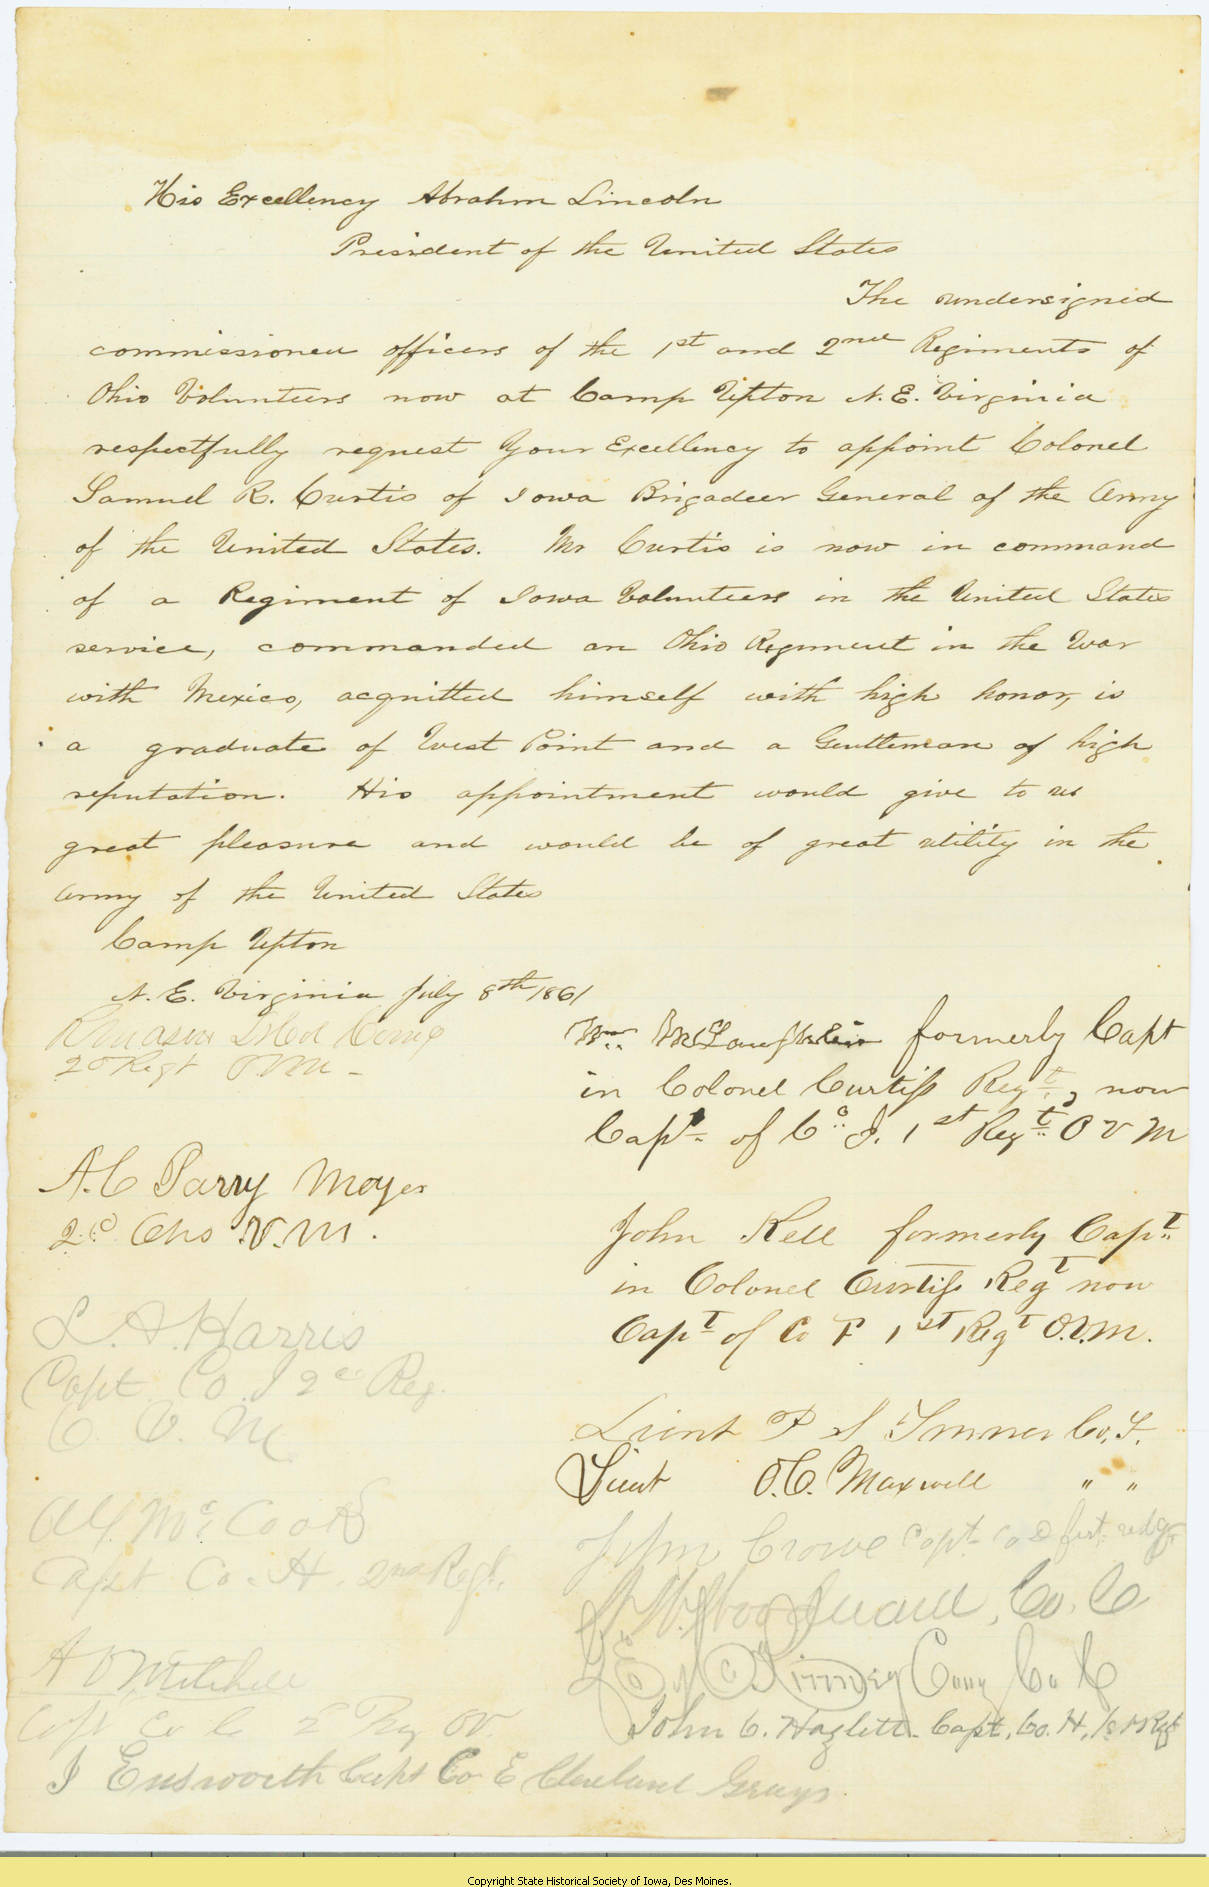 His Excellency Abrahm Lincoln
President of the United States
The undersigned
commissioned officers of the 1st and 2nd Regiments of
Ohio Volunteers now at Camp Upton N.E. Virginia
respectfully request Your Excellency to appoint Colonel
Samuel R. Curtis of Iowa Brigadeer General of the Army
of the United States. Mr Curtis is now in command
of a Regiment of Iowa Volunteers in the United States
service, commanded an Ohio Regiment in the War
with Mexico, acquitted himself with high honor, is
a graduate of West Point and a Gentleman of high
reputation. His appointment would give to us
great pleasure and would be of great utility in the
Army of the United States
Camp Upton
N. E. Virginia July 8th 1861
2d Regt O V M -
A. C Parry Mayor
2d Oho V. M.
L. A. Harris
Capt Co. I 2d Reg.
O V. M
Alf. McCook
Capt Co. H. 2nd Regt.
A O Mitchell
Capt Co C 2d Reg OV.
J Ensworth Capt Co E Cleveland Grays
Wm McLaughlin formerly Capt
in Colonel Curtiss Regt, now
Capt of Co I. 1st Regt O V M
John Kell formerly Capt
in Colonel Curtiss Regt now
Capt of Co F 1st Regt O.V.M.
Lieut P S Turner Co. F.
Lieut O.C. Maxwell " "
John Crowe Capt Co D first redg
Woodward, Co. C
Kinney Co K
John C. Hazlett. Capt. Co. H, 1st Regt
Copyright State Historical Society of Iowa, Des Moines.